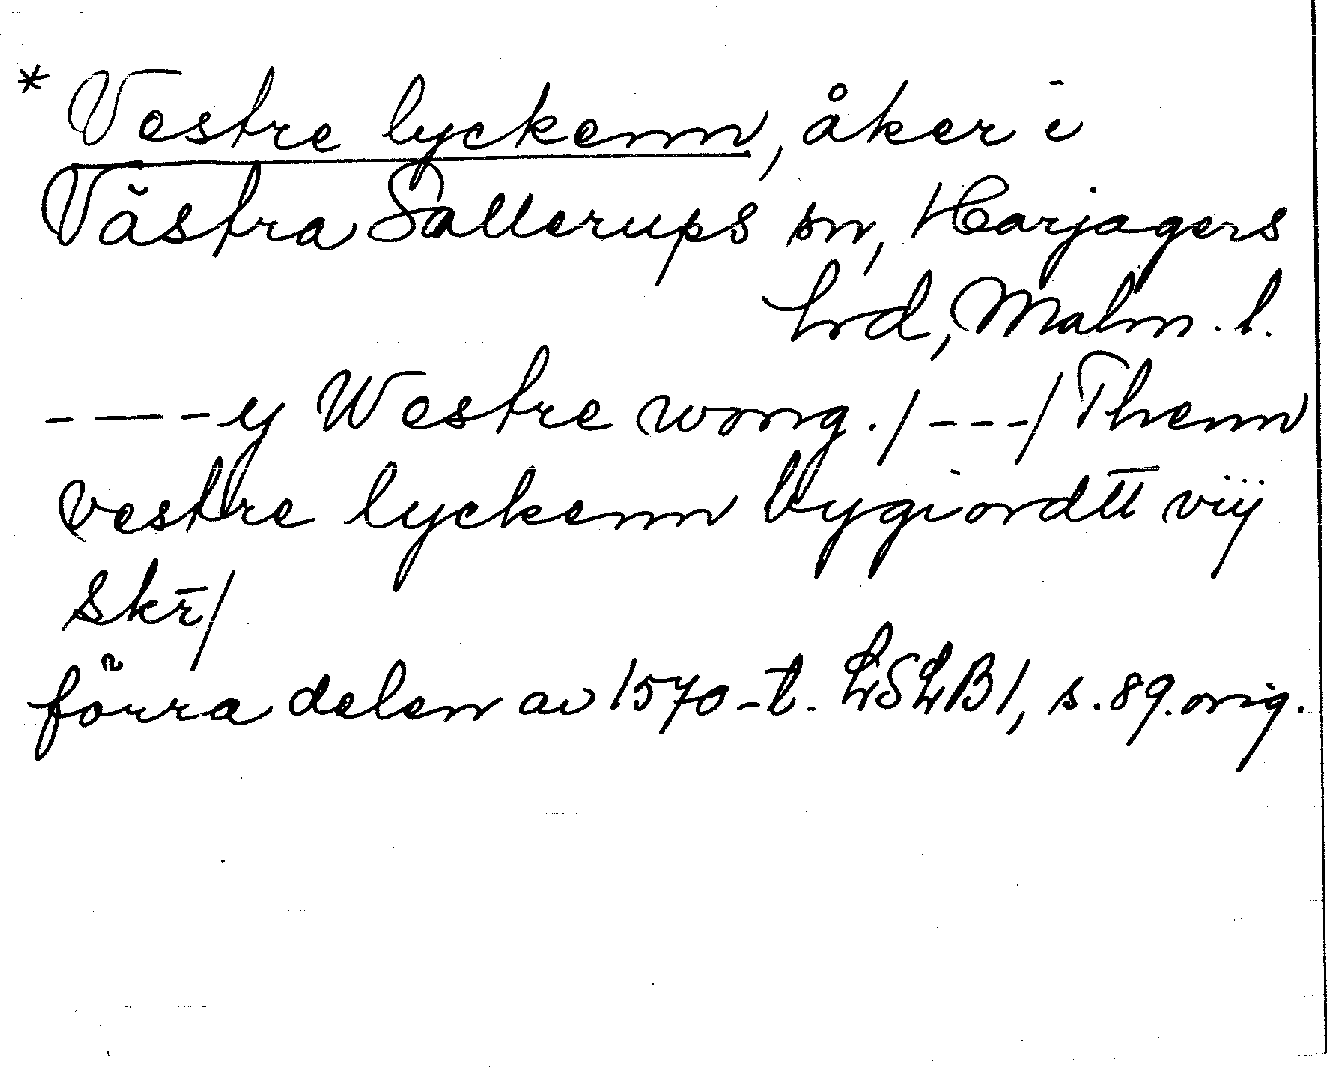 * Vestre lyckenn, åker i
Västra Sallerups sn, Harjagers
hd, Malm. l.
- — - - y Westre wong. / - - - / Thenn
vestre lyckenn bygiordtt viij
skr̄ /
förra delen av 1570-t. LSLB 1, s. 89. orig.